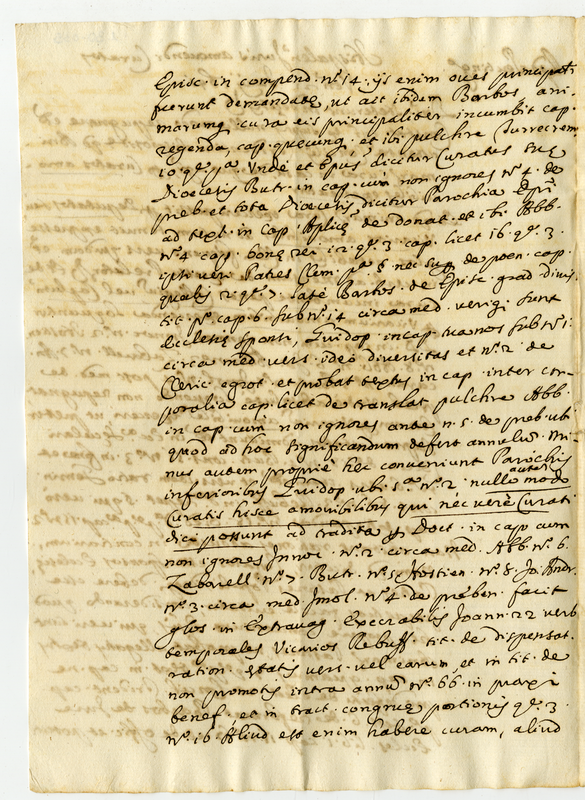 Episc. in compend. nº 14. ijs enim oves principalr
fuerunt demandatę, ut ait ibidem Barbos. ani-
marumq; cura eis principaliter incumbit cap.
regenda, cap. quecunq; et ibi pulchre Turrecrem.
10 q. pª. Unde et Epus dicitur Curatus suę
Diocesis Butr. in cap. cum non ignores nº 4. de
preb. et tota Diocesis dicitur Parochia Epi
ad text. in cap. Aplicę de donat. et ibi Abb.
nº 4 cap. bonę rei 12. q. 3. cap. licet 16. q. 3.
ipsi veri Patres Clem. pª § nec sup de poen. cap.
qualis 2. q. 7. latè Barbos. de Episc. grad.
tit. pº cap. 6. sub nº 14 circa med. verig. sunt
Ecclesię sponsi, Guidop. in cap. tua nos sub nº 1.
circa med. vers. ideo diversitas et nº 2. de
Cleric. egrot. et probat textus in cap. inter cor-
poralia cap. licet de translat. pulchre Abb.
in cap. cum non ignores ante n. 5. de preb. ubi
quod ad hoc significandum defert annulum. Mi-
nus autem propriè hęc conveniunt Parochis
inferioribus Guidop. ubi s.ª nº 2. nullo autem modo
Curatis hisce amovibilibus qui nec verè Curati
dici possunt ad tradita p Doct. in cap. cum
non ignores Innoc. nº 2. circa med. Abb. nº 6.
Zabarell. nº 7. Butr. nº 5. Hostien. nº 8. Jo: Andr.
nº 3. circa med. Imol. nº 4. de pręben. facit
glos. in Extravag. Execrabilis Joann. 22 verb.
temporales Vicarios Rebuff. tit. de dispensat.
ration. ętatis vers. vel earum, et in tit. de
non promotis intra annũ nº 66. in praxi
benef., et in tract. congruę portionis q. 3.
nº 16. Aliud est enim habere curam, aliud